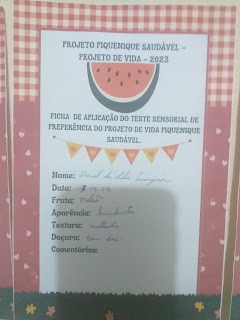 PROJETO PIQUENIQUE SAUDÁVEL –
PROJETO DE VIDA – 2023
FICHA DE APLICAÇÃO DO TESTE SENSORIAL DE
PREFERÊNCIA DO PROJETO DE VIDA PIQUENIQUE
SAUDÁVEL.
Nome:
Data:
Fruta: Melão
Aparência:
Textura:
Doçura: Sem doce
Comentários: